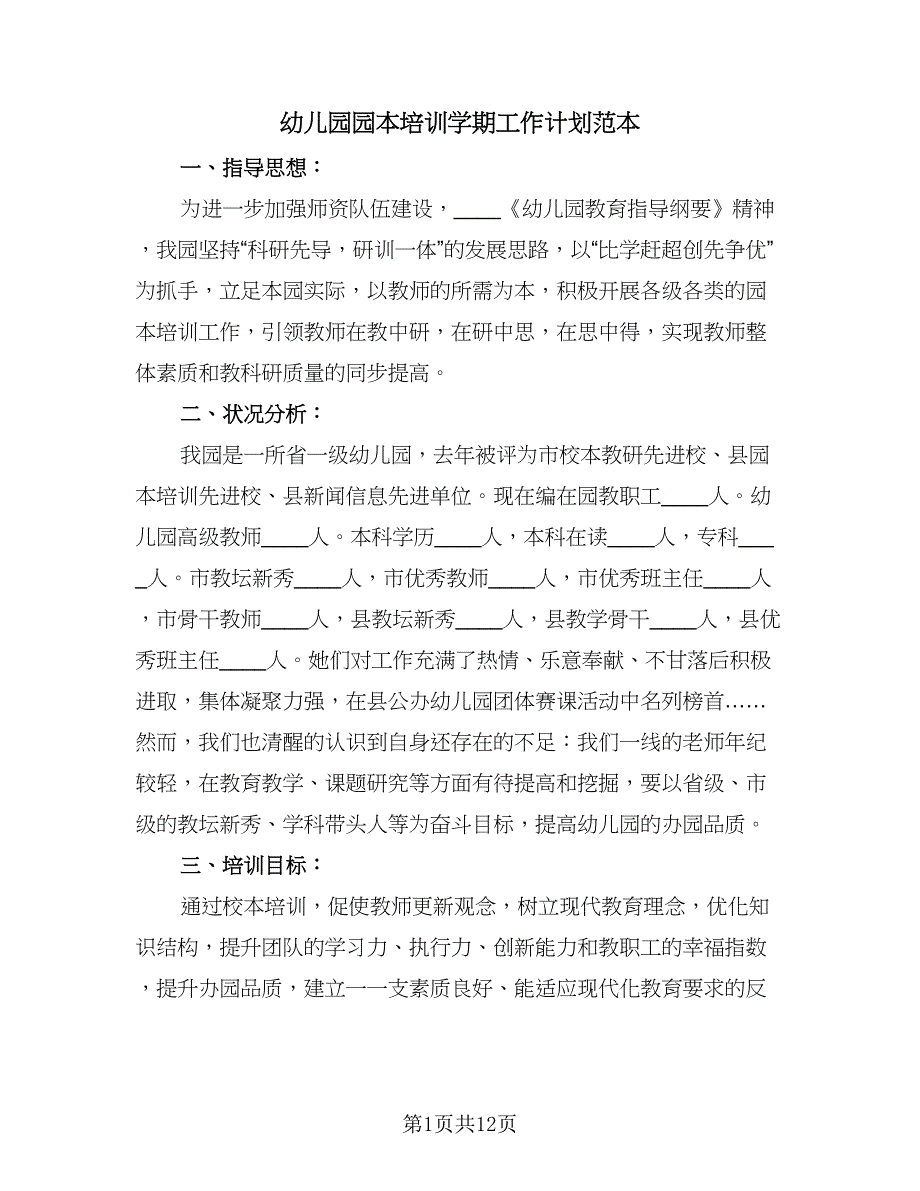 幼儿园园本培训学期工作计划范本
一、指导思想：
为进一步加强师资队伍建设，_____《幼儿园教育指导纲要》精神
，我园坚持“科研先导，研训一体”的发展思路，以“比学赶超创先争优”
为抓手，立足本园实际，以教师的所需为本，积极开展各级各类的园
本培训工作，引领教师在教中研，在研中思，在思中得，实现教师整
体素质和教科研质量的同步提高。
二、状况分析：
我园是一所省一级幼儿园，去年被评为市校本教研先进校、县园
本培训先进校、县新闻信息先进单位。现在编在园教职工_____人。幼
儿园高级教师_____人。本科学历_____人，本科在读_____人，专科____
_人。市教坛新秀_____人，市优秀教师_____人，市优秀班主任_____人
，市骨干教师_____人，县教坛新秀_____人，县教学骨干_____人，县优
秀班主任_____人。她们对工作充满了热情、乐意奉献、不甘落后积极
进取，集体凝聚力强，在县公办幼儿园团体赛课活动中名列榜首……
然而，我们也清醒的认识到自身还存在的不足：我们一线的老师年纪
较轻，在教育教学、课题研究等方面有待提高和挖掘，要以省级、市
级的教坛新秀、学科带头人等为奋斗目标，提高幼儿园的办园品质。
三、培训目标：
通过校本培训，促使教师更新观念，树立现代教育理念，优化知
识结构，提升团队的学习力、执行力、创新能力和教职工的幸福指数
，提升办园品质，建立一一支素质良好、能适应现代化教育要求的反
第1页共12页